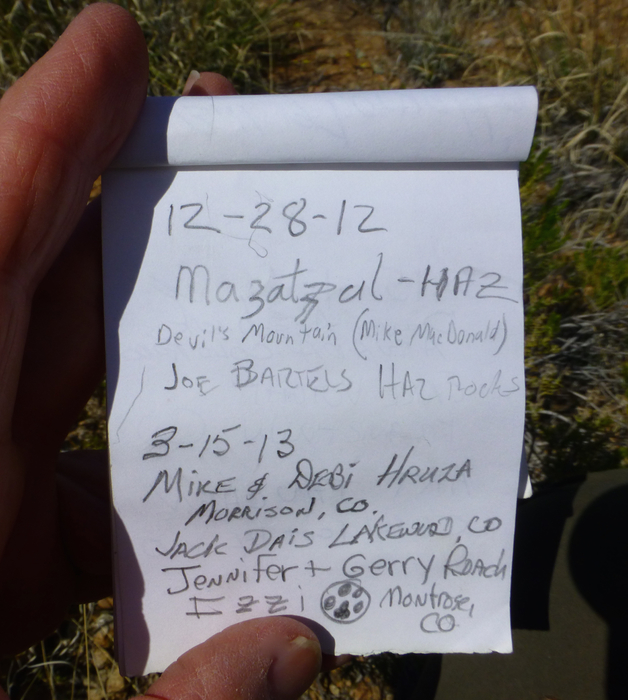 12-28-12
Mazatzal - HAZ
Devil's Mountain (Mike MacDonald)
JOE BARTELS HAZ Rocks
3-15-13
MIKE & DEBI HRUZA
MORRISON, CO.
JACK DAIS LAKEWOOD, CO
Jennifer + Gerry Roach
Izzi Montrose,
CO